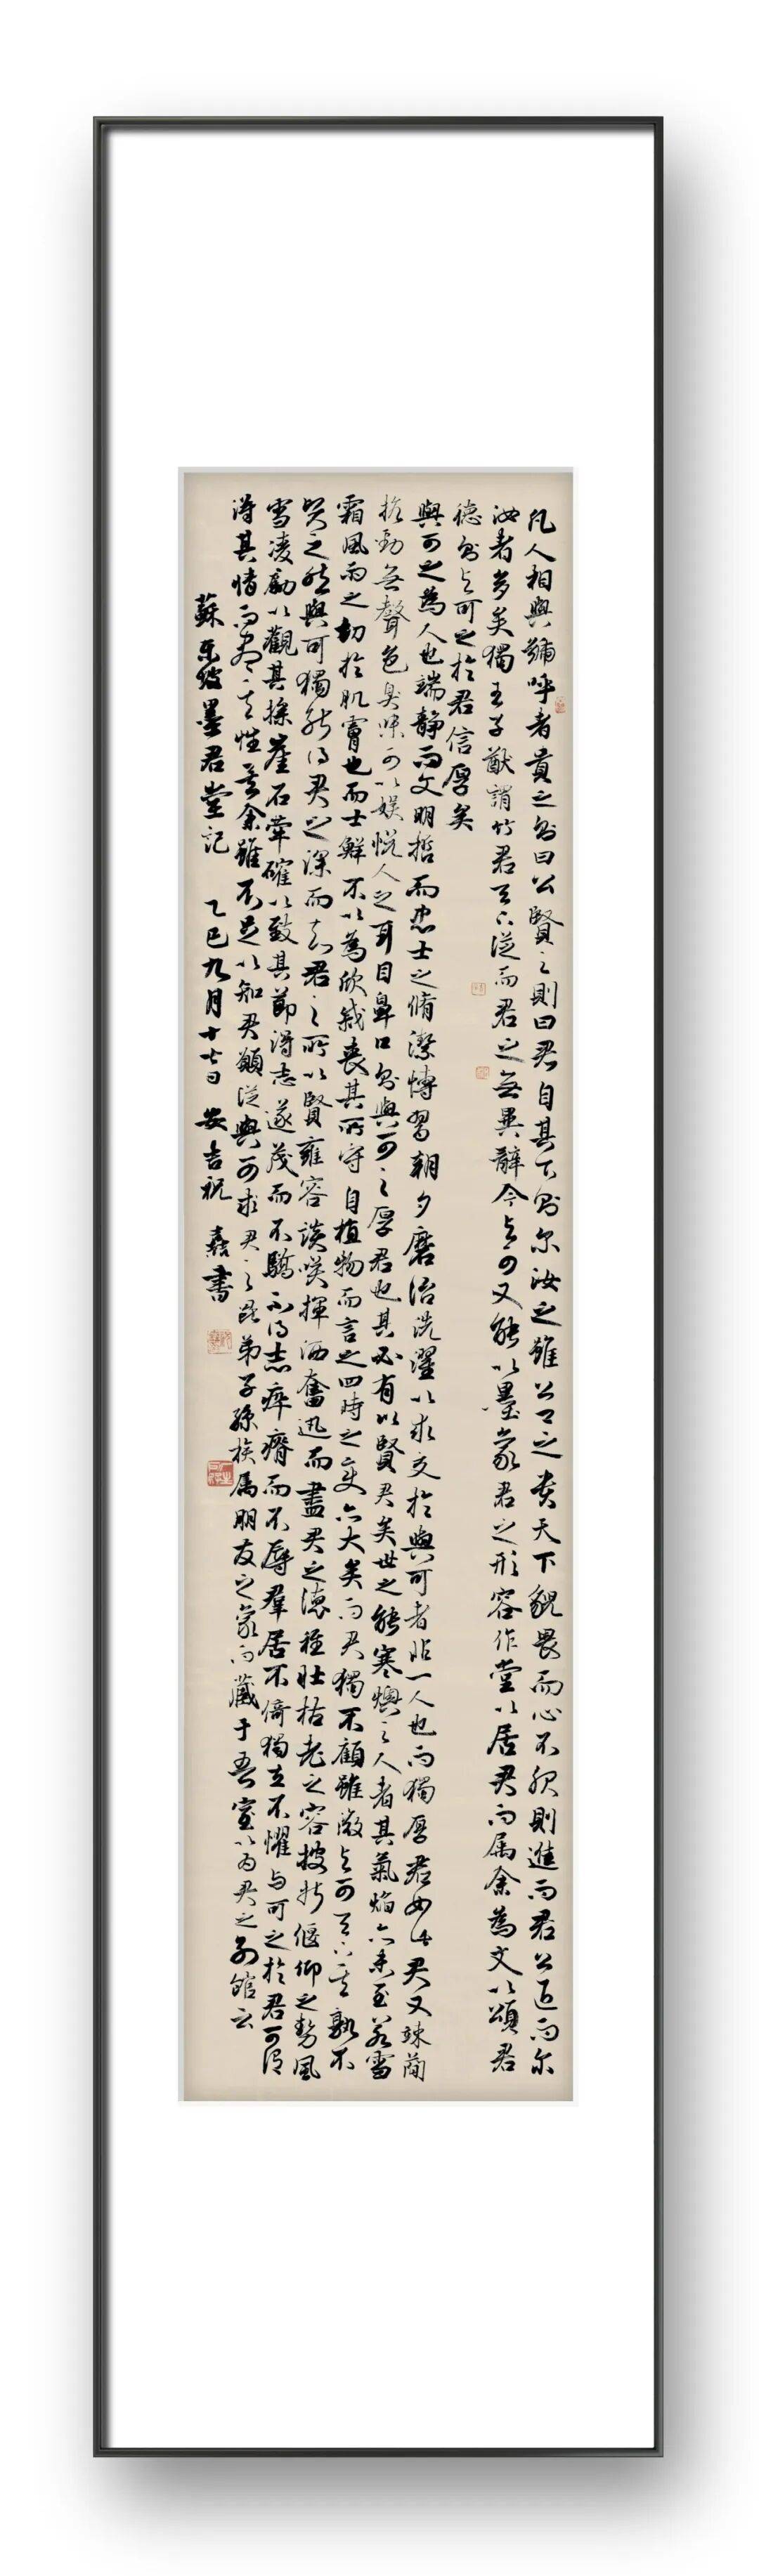 凡人相與號呼者貴之則曰公賢之則曰君自其下則尔汝之雖公卿之貴天下貌畏而心不服則進而君公退而尔
汝者多矣獨王子猷謂竹君天下從而君之無異辭今與可又能以墨象君之形容作堂以居君而属余為文以頌君
德則與可之於君信厚矣
與可之為人也端靜而文明哲而忠士之脩潔博習朝夕磨治洗濯以求交於與可者非一人也而獨厚君如此君又踈蕳
抗勁無聲色臭味可以娱悦人之耳目鼻口則與可之厚君也其必有以賢君矣世之能寒燠之人者其氣焰亦未至若雪
霜風雨之切於肌膚也而士鮮不以為欣戚喪其所守自植物而言之四時之变亦大矣而君獨不顧雖微與可天下其孰不
賢之然與可獨能得君之深而知君之所以賢雍容談笑揮洒奮迅而盡君之德稚壯枯老之容披折偃仰之勢風
雪凌勵以觀其操崖石犖確以致其節得志遂茂而不驕不得志瘁瘠而不辱羣居不倚獨立不懼与可之於君可謂
得其情而盡其性矣余雖不足以知君願從與可求君之昆弟子孫族属朋友之象而藏于吾室以為君之别館云
蘇東坡墨君堂記 乙巳九月十七日 安吉祝熹書